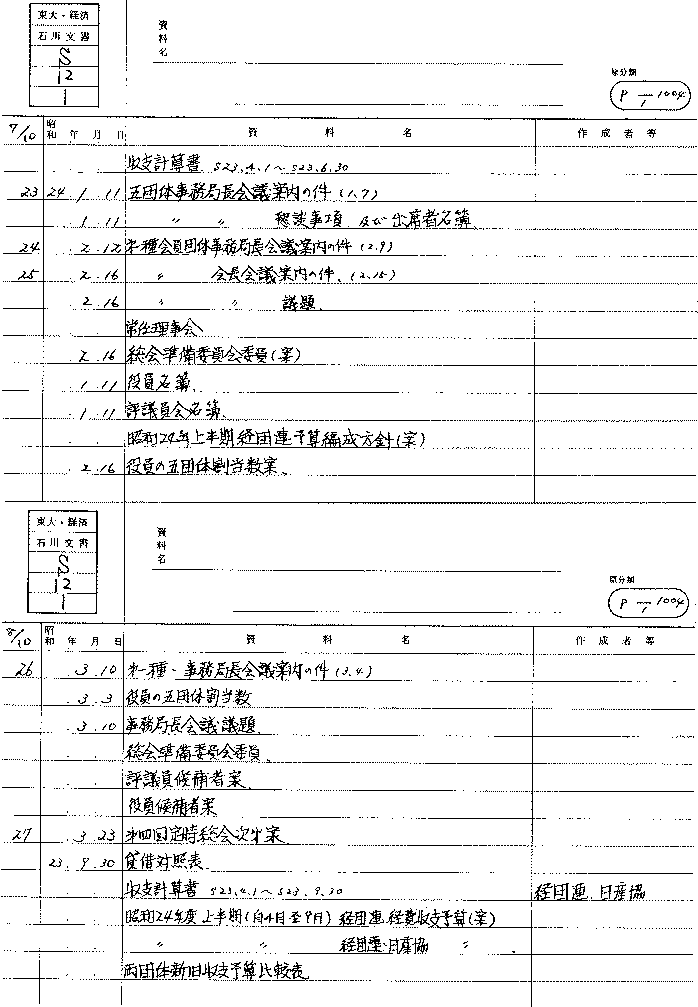 東大・経済
石川文書
S
12
1
資料名
原分類
P-1-1004
7/10 昭和 年 月 日 資料名 作成者等
収支計算書 S23.4.1〜S23.6.30
23 24 1 11 五団体事務局長会議案内の件(1.7)
1.11 〃 〃 懇談事項 及び出席者名簿
24 2.12 オ一種会員団体事務局長会議案内の件(2.9)
25 2.16 〃 会長会議案内の件、(2.15)
2.16 〃 〃 議題
常任理事会
2.16 総会準備委員会委員(案)
1.11 役員名簿
1.11 評議員会名簿
昭和24年上半期経団連予算編成方針(案)
2.16 役員の五団体割当数案
東大・経済
石川文書
S
12
1
資料名
原分類
P-1-1004
8/10 昭和 年 月 日 資料名 作成者等
26 3.10 オ一種・事務局長会議案内の件(3.4)
3.3 役員の五団体割当数
3.10 事務局長会議議題
総会準備委員会委員
評議員候補者案
役員候補者案
27 3 23 オ四回定時総会次オ案
23.9.30 貸借対照表
収支計算書 S23.4.1〜S23.9.30 経団連、日産協
昭和24年度上半期(自4月至9月)経団連経費収支予算(案)
〃 〃 経団連・日産協 〃
両団体新旧収支予算比較表